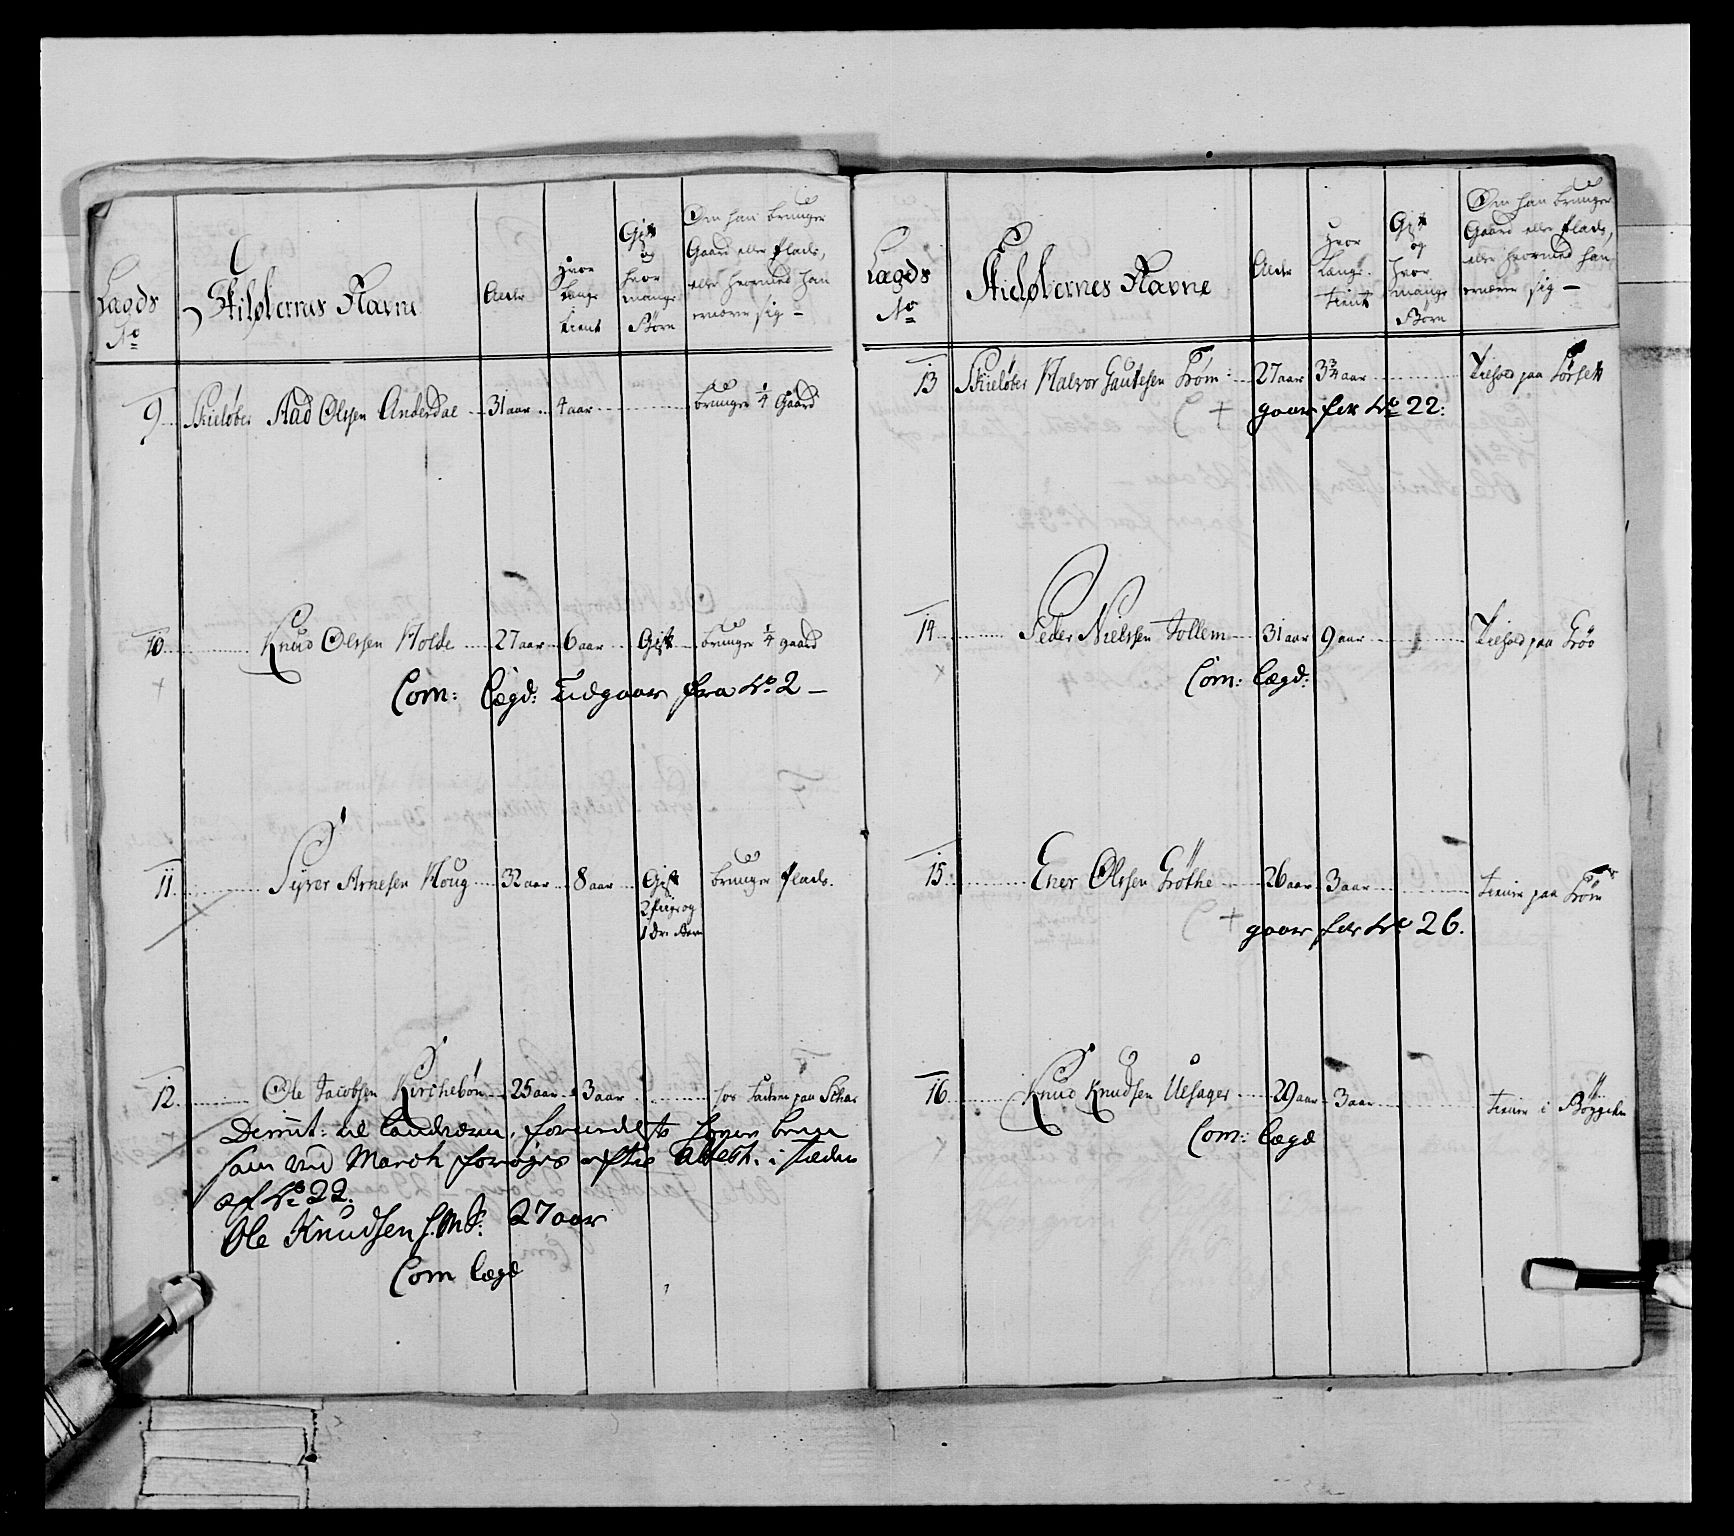 Lægds No
Skiløbernes Navne
Alder
Hvor Længe tient
Gift og hvor mange Børn
Om han bruuger Gaard eller Plads, eller hvormed han ernærer sig —
9 Skieløber Aad Olssen Anderdal 31 aar 4 aar bruuger 1/4 Gaard
10 Knud Olssen Holde 27 aar 6 aar Gift bruuger 1/4 gaard
Com: Lægd: udgaar fra No 2 —
11 Syver Arnesen Houg 32 aar 8 aar Gift bruuger Plads.
2 og
1 Børn
12 Ole Jacobsen Kirchebøn 25 aar 3 aar hos Faderen paa
Dimit: til Landværn,
som ved March efter Attest. i stæden
af No 22.
Ole Knudsen 27 aar
Com Lægd
Lægds No
Skieløbernes Navne
Alder
Hvor Længe tient
Gift og hvor mange Børn
Om han bruuger Gaard eller Plads, eller hvormed han ernærer sig —
13 Skieløber Halvor Gautesen Trøm 27 aar 3 3/4 aar Tilhold paa
gaar for No 22:
14 Peder Nielssen Tollem 31 aar 9 aar Tilhold paa
Com: Lægd:
15 Ener Olssen Grøthe 26 aar 3 aar tiener paa Trøm
gaar for No 26.
16 Knud Knudsen Ulsager 29 aar 3 aar tiener i
Com: Lægd